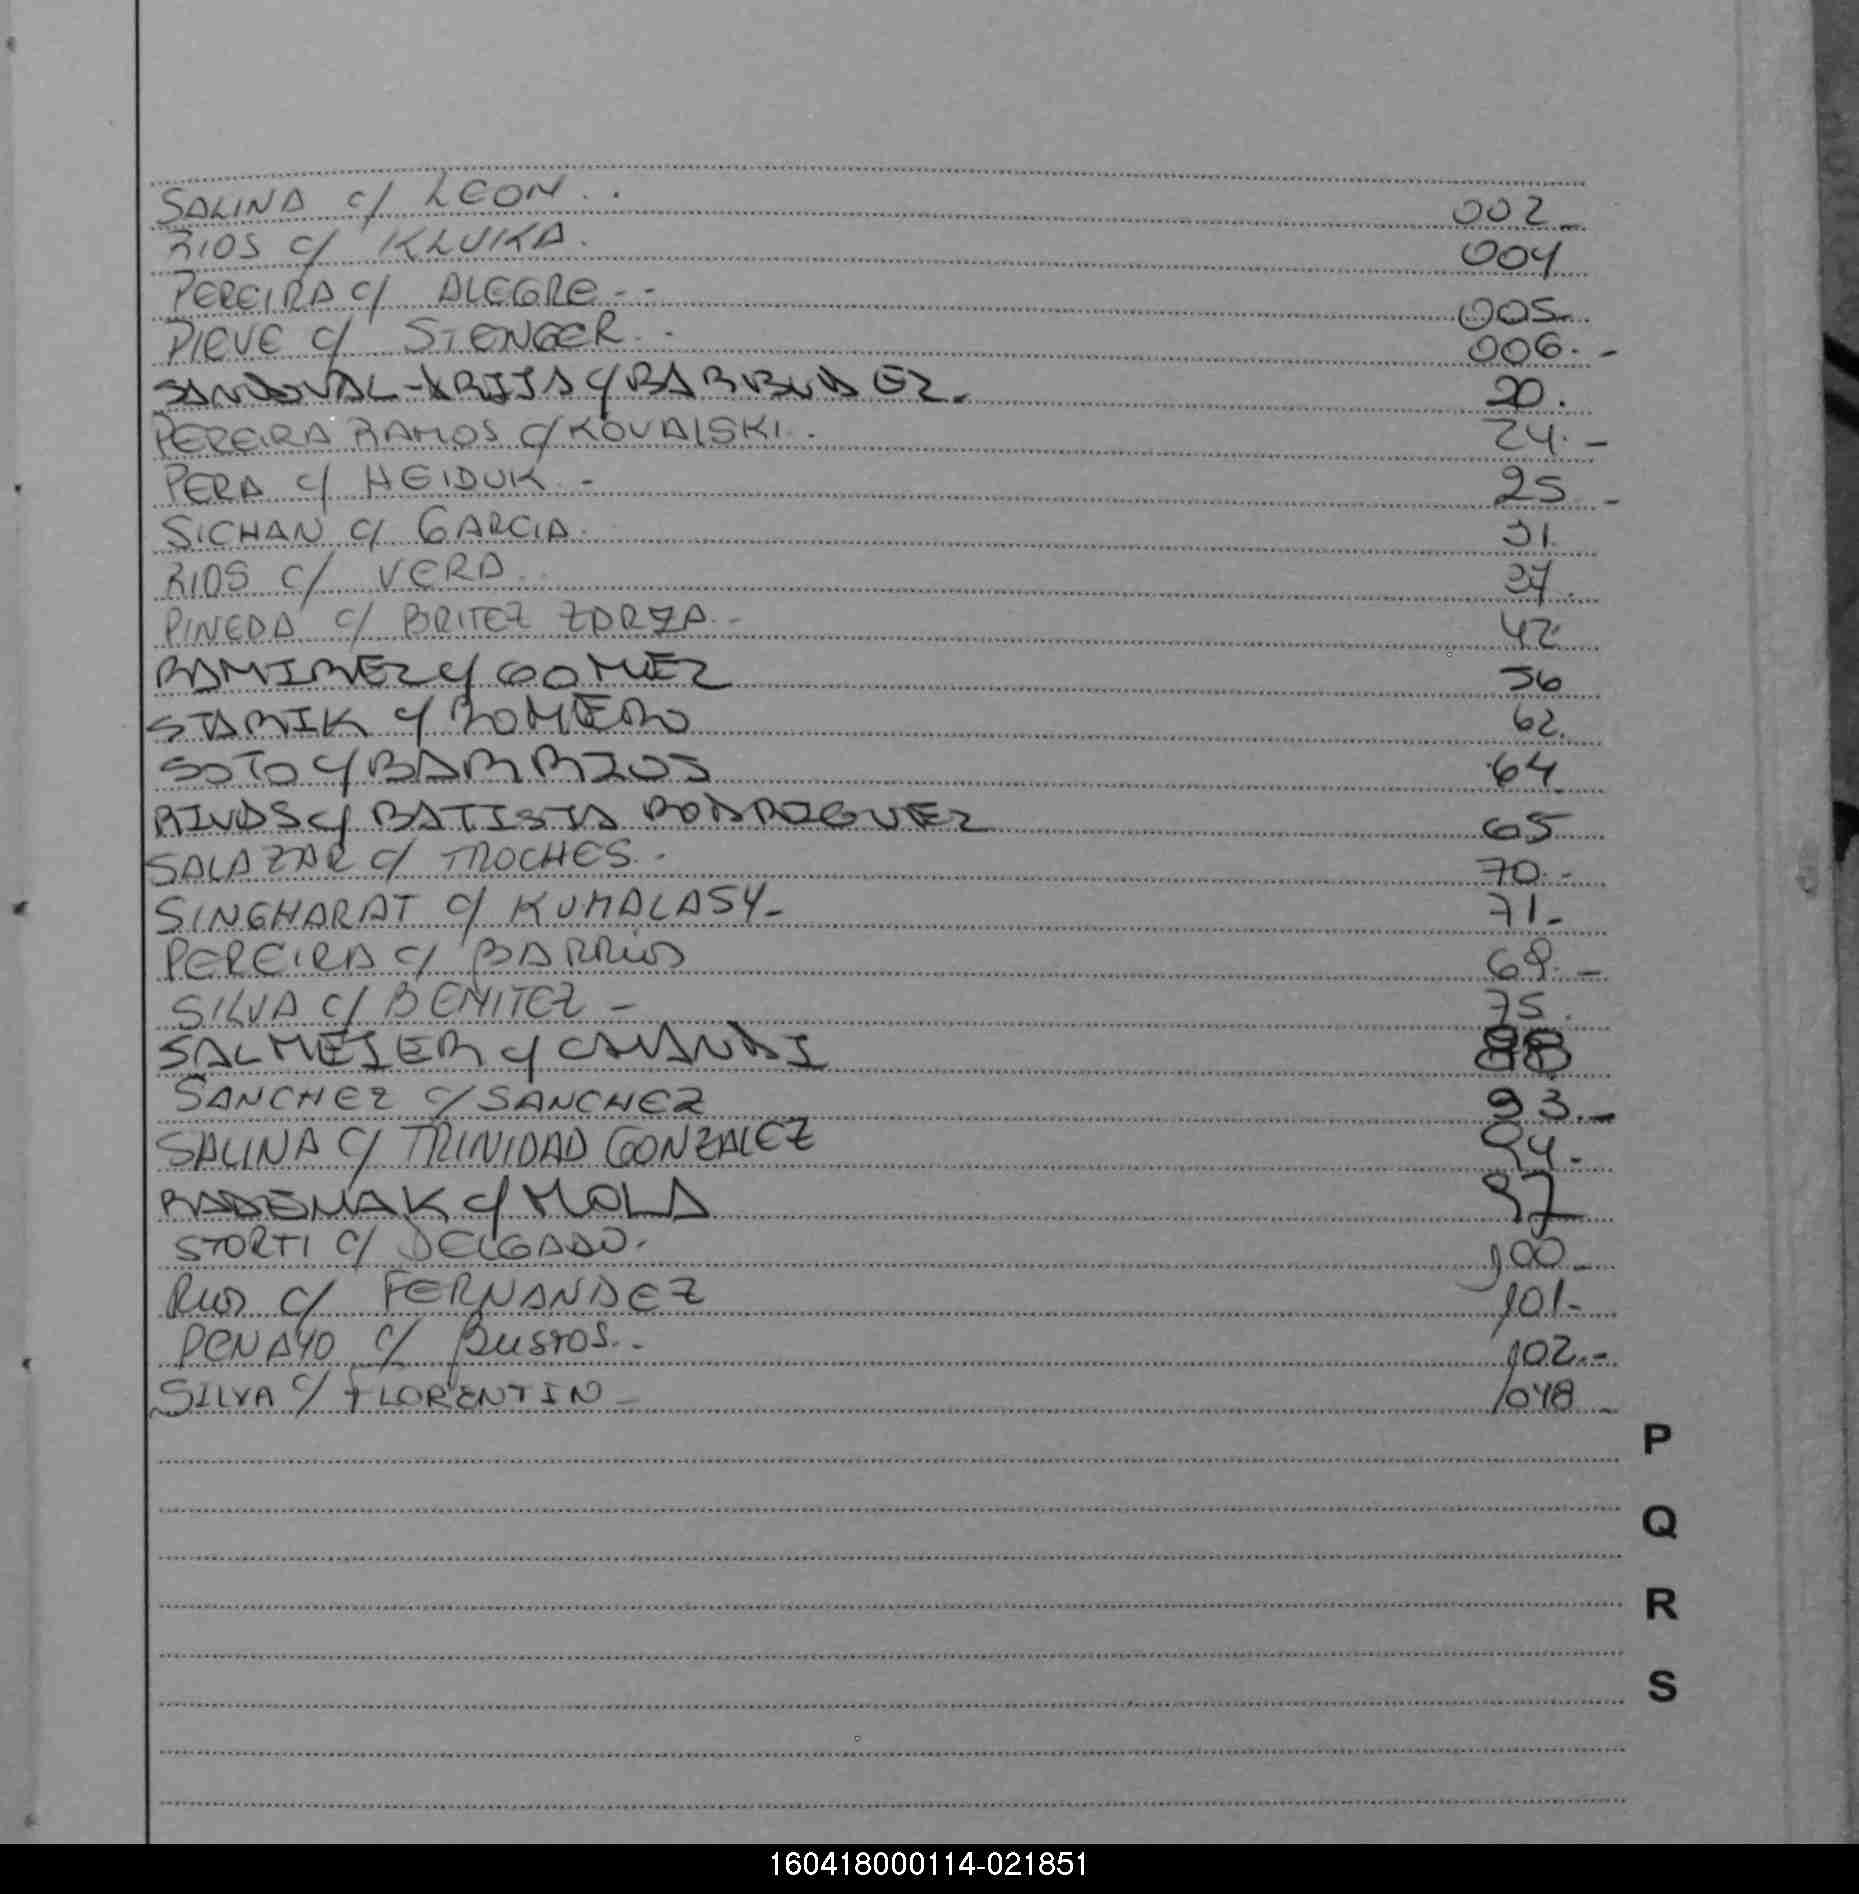 SALINA c/ LEON. .
002_
RIOS c/ KLUKA.
004
PEREIRA c/ ALEGRE - -
005.
PIEVE c/ STENGER. .
006. -
20.
PEREIRA RAMOS c/ KOVALSKI. .
24. -
PERA c/ HEIDUK -
25 -
SICHAN c/ GARCIA.
31.
RIOS c/ VERA
37.
PINEDA c/ BRITEZ ZORZA. -
42.
RAMIREZ c/ GOMEZ
56
STARIK c/ ROMERO
62.
SOTO c/ BARRIOS
64.
RIVAS c/ BATISTA RODRIGUEZ
65
SALAZAR c/ TROCHES. -
70. -
SINGHARAT c/ KUMALASY -
71. -
PEREIRA c/ BARRIOS
69. -
SILVA c/ BENITEZ -
75.
88
SANCHEZ c/ SANCHEZ
93. -
SALINA c/ TRINIDAD GONZALEZ
94.
c/ MOLA
97
STORTI c/ DELGADO.
100 -
RIOS c/ FERNANDEZ
101. -
PENAYO c/ BUSTOS. .
102. -
SILVA c/ FLORENTIN -
P
Q
R
S
160418000114-021851